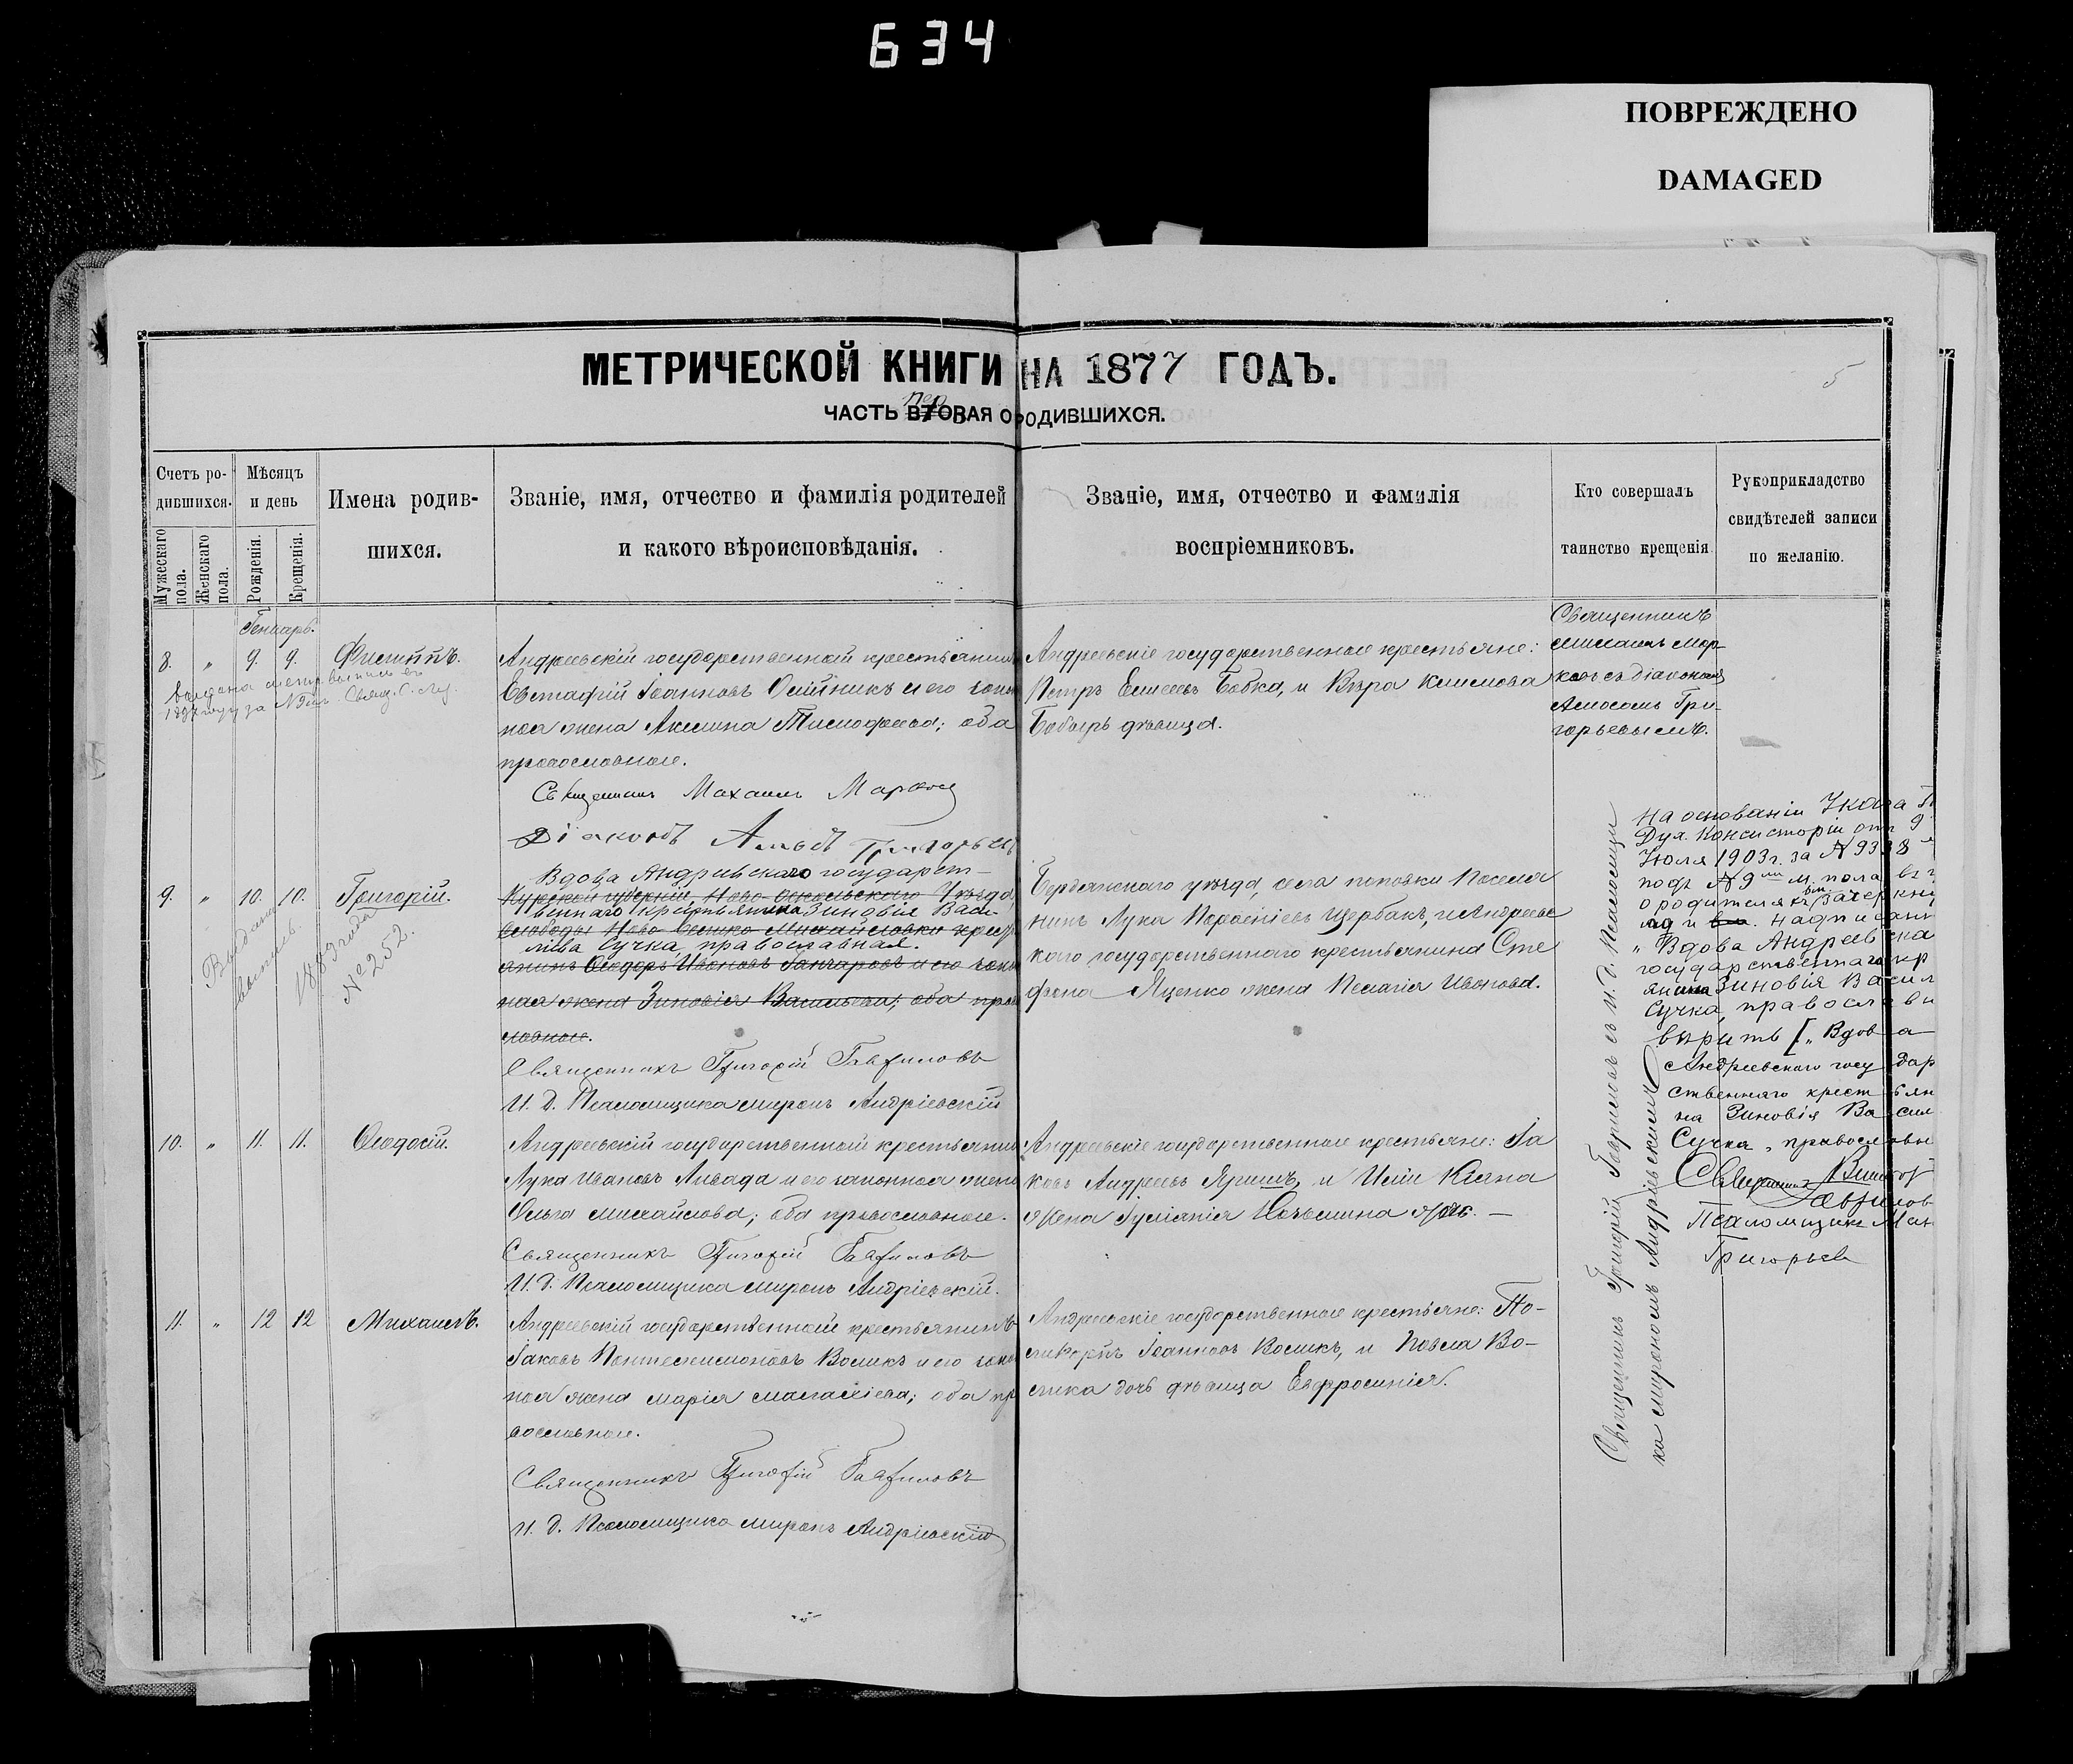 634
ПОВРЕЖДЕНО
DAMAGED
МЕТРИЧЕСКОЙ КНИГИ НА 1877 ГОДЪ.
5
ЧАСТЬ ВТОРАЯ О РОДИВШИХСЯ.
Счетъ ро-
дившихся.
Мужескаго пола.
Женскаго пола.
Мѣсяцъ
и день
Рожденія.
Крещенія.
Имена родив-
шихся.
Званіе, имя, отчество и фамилія родителей
и какого вѣроисповѣданія.
Званіе, имя, отчество и фамилія
воспріемниковъ.
Кто совершалъ
таинство крещенія
Рукоприкладство
свидѣтелей записи
по желанію.
Генварь.
8. " 9. 9. Филиппъ.
Андреевскій государственный крестьянинъ
Евстафій Іоанновъ Олійникъ и его закон
ная жена Акилина Тимофеева; оба
православные.
Священникъ Михаилъ Марков
Діаконъ Амосъ Григорьевъ
Андреевскіе государственные крестьяне:
Петръ Елисеевъ Бобка, и Вѣра Климова
Бобырь дѣвица.
Священникъ
Михаилъ Мар-
ковъ съ діакономъ
Амосомъ Гри-
горьевымъ.
9. " 10. 10. Григорій.
Выдана
выпись.
1889 года
№ 252.
Вдова Андреевскаго государст-
Курской губерніи, Ново-Оскольскаго Уѣзда
веннаго крестьянина Зиновія Васи-
слободы Ново Велико Михайловки крест
ліева Сучка, православная.
янинъ Ѳеодоръ Ивановъ Ганчаровъ и его закон
ная жена Зиновія Васильева; оба право
славные.
Священникъ Григорій Гавриловъ
И. д. Псаломщика Миронъ Андріевскій
Бердянскаго уѣзда, села Поповки Поселя
нинъ Лука Щербакъ, и Андреевс
каго государственнаго крестьянина Сте
фана Яценко жена Пелагія Иванова.
Священникъ Григорій Гавриловъ съ И. д. Псаломщи
ка Мирономъ Андріевскимъ
На основаніи Указа
Дух. Консисторіи отъ 9
Іюля 1903 г. за № 9338
подъ № 9 м. пола въ
о родителяхъ зачеркну
надписан
"Вдова Андреевска
государственнаго кр
янина Зиновія Васил
Сучка, православн
вѣрить ["Вдова
Андреевскаго государ
ственнаго крестьян
на Зиновія Васил
Сучка, православн
Священникъ Викторъ
Гаврилов
Псаломщикъ
Григорьев
10. " 11. 11. Ѳеодосій.
Андреевскій государственный крестьянин
Лука Ивановъ Ливада и его законная жена
Ольга Михайлова; оба православные.
Священникъ Григорій Гавриловъ
И. д. Псаломщика Миронъ Андріевскій.
Андреевскіе государственные крестьяне: Іа
ковъ Андреевъ Яришъ, и Кіяна
жена Іуліанія
11. " 12 12 Михаилъ.
Андреевскій государственный крестьянинъ
Іаковъ Пантелеимоновъ Воликъ и его закон
ная жена Марія; оба пр
вославные.
Священникъ Григорій Гавриловъ
И. д. Псаломщика Миронъ Андріевскій
Андреевскіе государственные крестьяне: По-
ликарпъ Іоанновъ Воликъ, и Павла Во-
лика дочь дѣвица Евфросинія.